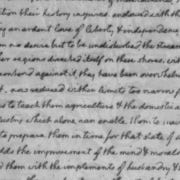 ition their history inspires. endowed with th
ng an ardent love of liberty & independence
no desire but to be undisturbed, the stream
her regions directed itself on these shores. with
contend against it, they have been overwhelm
t, now reduced within limits too narrow f
to teach them agriculture & the domestic a
dustry which alone can enable them to main
to prepare them in time for that state of s
dds the improvement of the mind & morals
d them with the implements of husbandry &